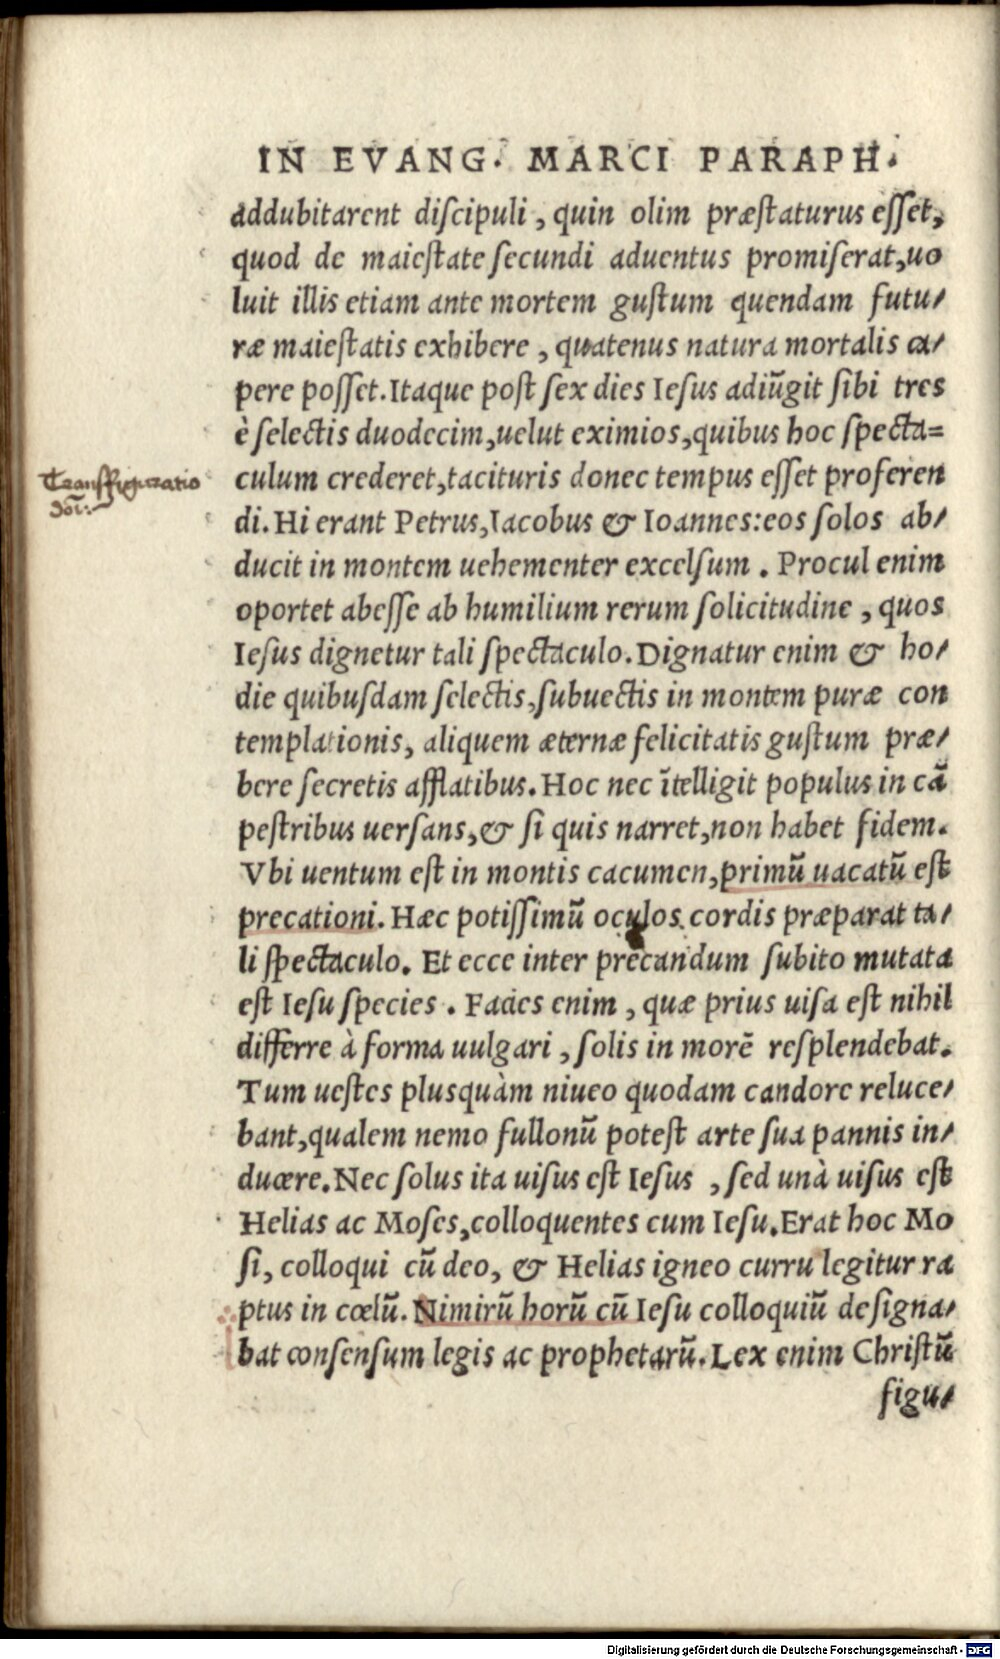 IN EVANG. MARCI PARAPH.
addubitarent diſcipuli, quin olim præſtaturus eſſet,
quod de maieſtate ſecundi aduentus promiſerat, uo
luit illis etiam ante mortem guſtum quendam futu/
ræ maieſtatis exhibere, quatenus natura mortalis ca/
pere poſſet. Itaque poſt ſex dies Ieſus adiũgit ſibi tres
è ſelectis duodecim, uelut eximios, quibus hoc ſpecta=
Tranſfiguratio
culum crederet, tacituris donec tempus eſſet proferen
di. Hi erant Petrus, Iacobus & Ioannes: eos ſolos ab/
ducit in montem uehementer excelſum. Procul enim
oportet abeſſe ab humilium rerum ſolicitudine, quos
Ieſus dignetur tali ſpectaculo. Dignatur enim & ho/
die quibuſdam ſelectis, ſubuectis in montem puræ con
templationis, aliquem æternæ felicitatis guſtum præ/
bere ſecretis afflatibus. Hoc nec ĩtelligit populus in cã
peſtribus uerſans, & ſi quis narret, non habet fidem.
Vbi uentum eſt in montis cacumen, primũ uacatũ eſt
precationi. Hæc potiſſimũ oculos cordis præparat ta/
li ſpectaculo. Et ecce inter precandum ſubito mutata
eſt Ieſu ſpecies. Facies enim, quæ prius uiſa eſt nihil
differre à forma uulgari, ſolis in morẽ reſplendebat.
Tum ueſtes plusquàm niueo quodam candore reluce/
bant, qualem nemo fullonũ poteſt arte ſua pannis in/
ducere. Nec ſolus ita uiſus eſt Ieſus, ſed unà uiſus eſt
Helias ac Moſes, colloquentes cum Ieſu. Erat hoc Mo
ſi, colloqui cũ deo, & Helias igneo curru legitur ra
ptus in cœlũ. Nimirũ horũ cũ Ieſu colloquiũ deſigna/
bat conſenſum legis ac prophetarũ. Lex enim Chriſtũ
figu/
Digitalisierung gefördert durch die Deutsche Forschungsgemeinschaft - DFG